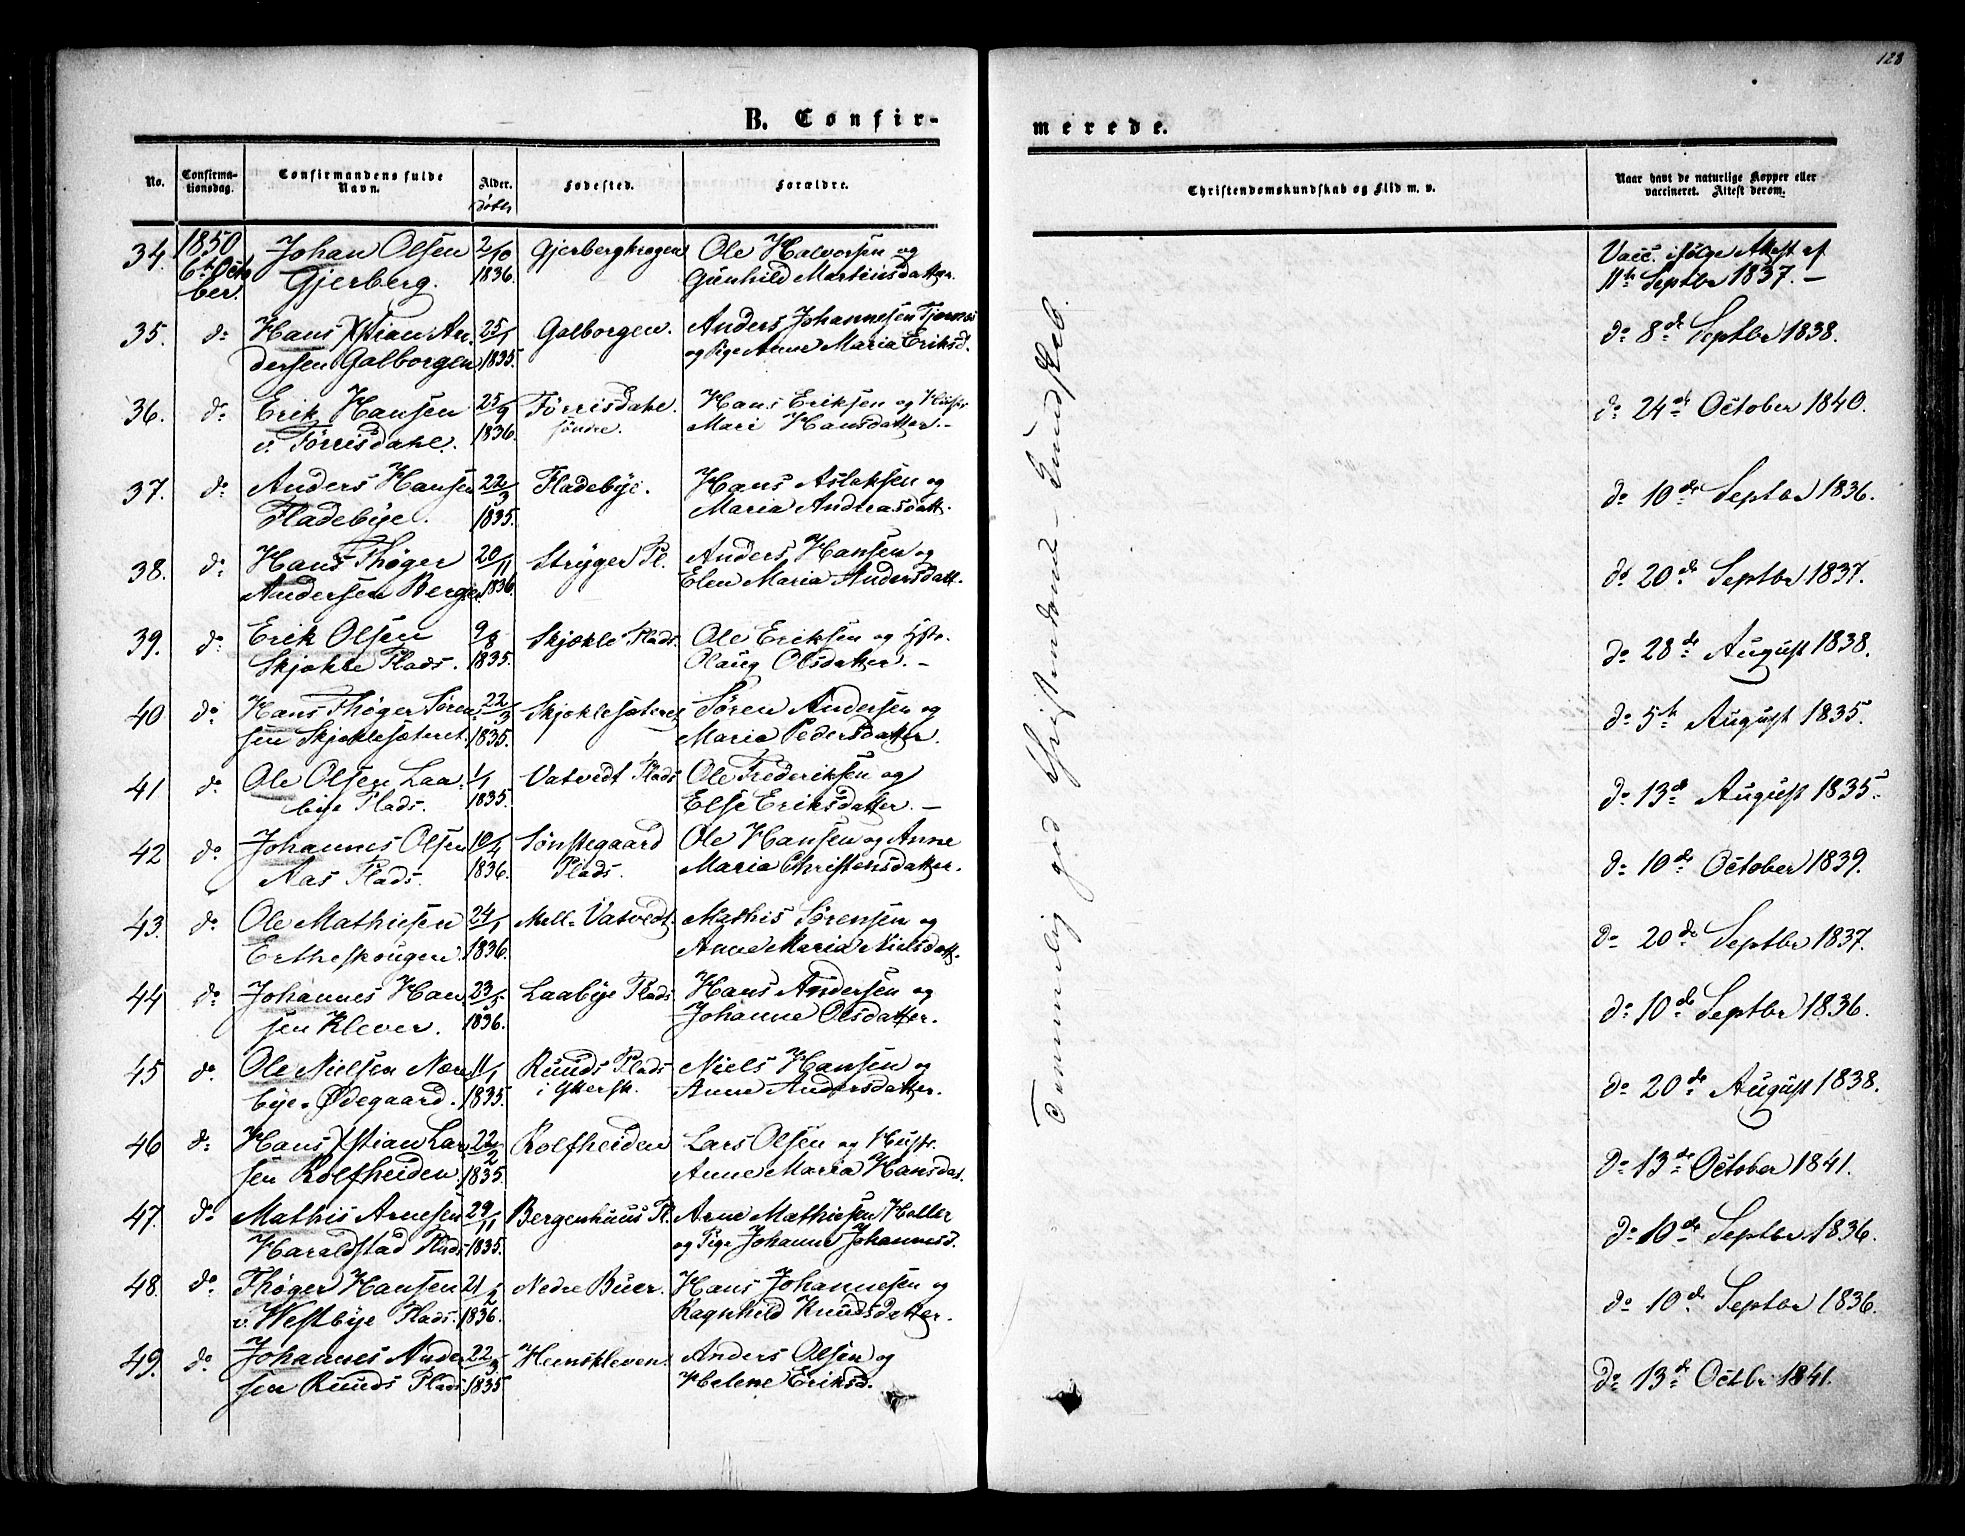 128
B. Confir-
merede.
No.
Confirma-
tionsdag.
Confirmandens fulde
Navn.
Alder.
Fødested.
Forældre.
Christendomskundskab og Flid m. v.
Naar havt de naturlige Kopper eller
vaccineret. Attest derom.
34. 1850 Johan Olsen 2/10 Gjerbergkrogen Ole Halvorsen og Vacc. ifølge Attest af
6te Octo Gjerberg. 1836. Gunhild Martinusdatter. 11te Septbr 1837. –
ber.
35. do Hans Xstian An 25/1 Galborgen. Anders Johannesen do 8de Septbr 1838.
dersen Galborgen 1835. og Pige Anne Maria Eriksd.
36. do Erik Hansen 25/9 Tørrisdahl. Hans Eriksen og do 24de October 1840.
v. Tørrisdahl. 1836. søndre. Mari Hansdatter. –
37. do Anders Hansen 22/3 Fladebye. Hans Aslaksen og do 10de Septbr 1836.
Fladebye. 1835. Maria Andreasdatt.
38. do Hans Thøger 20/11 Stryger Pl. Anders Hansen og do 20de Septbr 1837.
Andersen Berger 1836. Elen Maria Andersdatt.
39. do Erik Olsen 9/8 Skjøkle Plads. Ole Eriksen og Hstr. do 28de August 1838.
Skjøkle Plads. 1835. Olaug Olsdatter. –
40 do Hans Thøger Søren 22/3 Skjøklesæteret Søren Andersen og do 5te August 1835.
sen Skjøklesæteret. 1835. Maria Pedersdatter.
41. do Ole Olsen Laa 1/1 Vatvedt Plads Ole Frederiksen og do 13de August 1835.
bye Plads. 1835. Else Eriksdatter. –
42 do Johannes Olsen 10/4 Sønstegaard Ole Hansen og Anne do 10de October 1839.
Aas Plads. 1836. Plads. Maria Christensdatter.
43. do Ole Mathiesen 24/1 Mell. Vatvedt. Mathis Sørensen og do 20de Septbr 1837.
Ertheskougen. 1836. Anne Maria Nielsdatt.
44 do Johannes Han 23/5 Laabye Plads Hans Andersen og do 10de Septbr 1836.
sen Klever. 1836. Johanne Olsdatter.
45 do Ole Nielsen Nær 11/1 Ruuds Plads Niels Hansen og do 20de August 1838.
bye-Ødegaard. 1835. i Ytersk. Anne Andersdatter.
46 do Hans Xstian Lar 22/2 Rolfheiden Lars Olsen og Hustr. do 13de October 1841.
sen Rolfheiden. 1835. Anne Maria Hansdat.
47. do Mathis Arnesen 29/11 Bergenhuus Pl. Arne Mathiesen Holter do 10de Septbr 1836.
Haraldstad Plads 1835. og Pige Johanne Johannesd.
48. do Thøger Hansen 21/2 Nedre Buer. Hans Johannesen og do 10de Septbr 1836.
v. Westbye Plads. 1836. Ragnhild Knudsdatter.
49. do Johannes Ander 22/3 Heenskleven. Anders Olsen og do 13de Octbr 1841.
sen Ruuds Plads 1835 Helene Eriksd.
Temmelig god Christendoms-Kundskab.